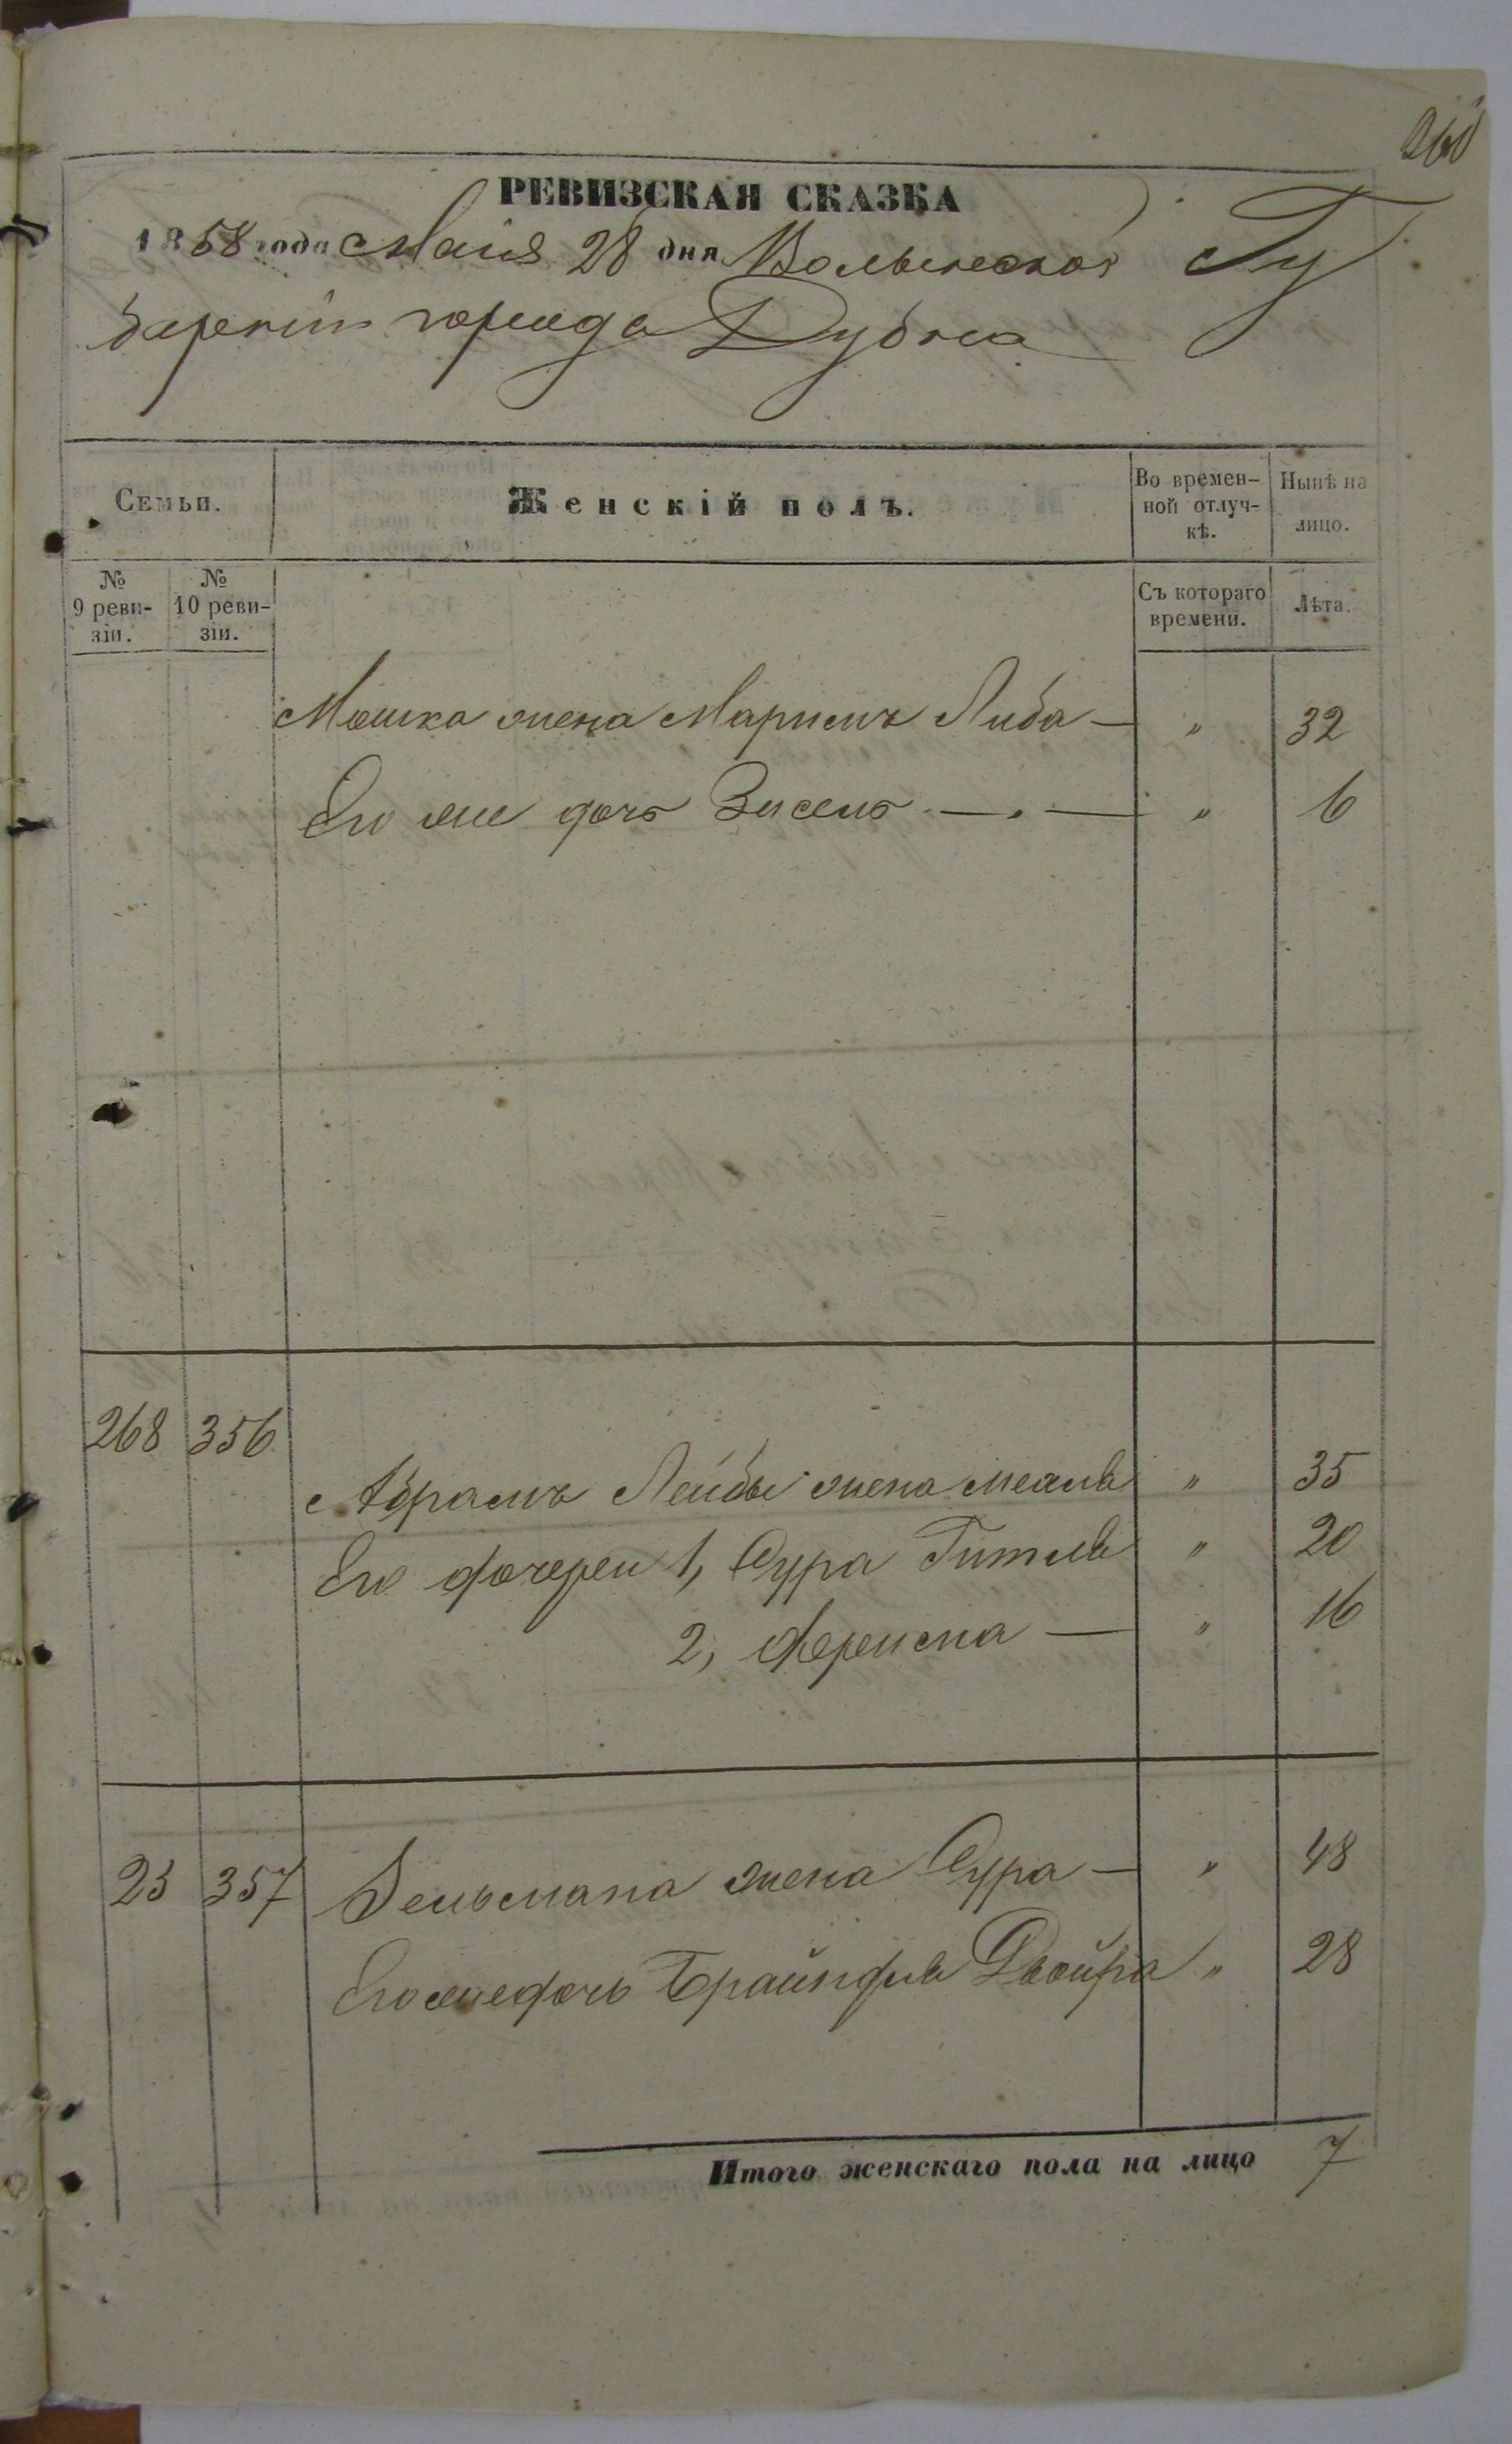 260
РЕВИЗСКАЯ СКАЗКА
1858 года Маія 28 дня Волынской Гу
берніи города Дубна
Семьи.
Женскій полъ.
Во времен-
ной отлуч-
кѣ.
Нынѣ на
лицо.
№
9 реви-
зіи.
№
10 реви-
зіи.
Съ котораго
времени.
Лѣта.
Мошка жена Маримъ Либа — " 32
Его же дочь Зисель — . — " 6
268 356
Абрамъ Лейбы жена " 35
Его дочереи 1, Сура Гитля " 20
2, — " 16
23 357 Зельмана жена Сура — " 48
Его же дочь Брайндля Двойра " 28
Итого женскаго пола на лицо 7